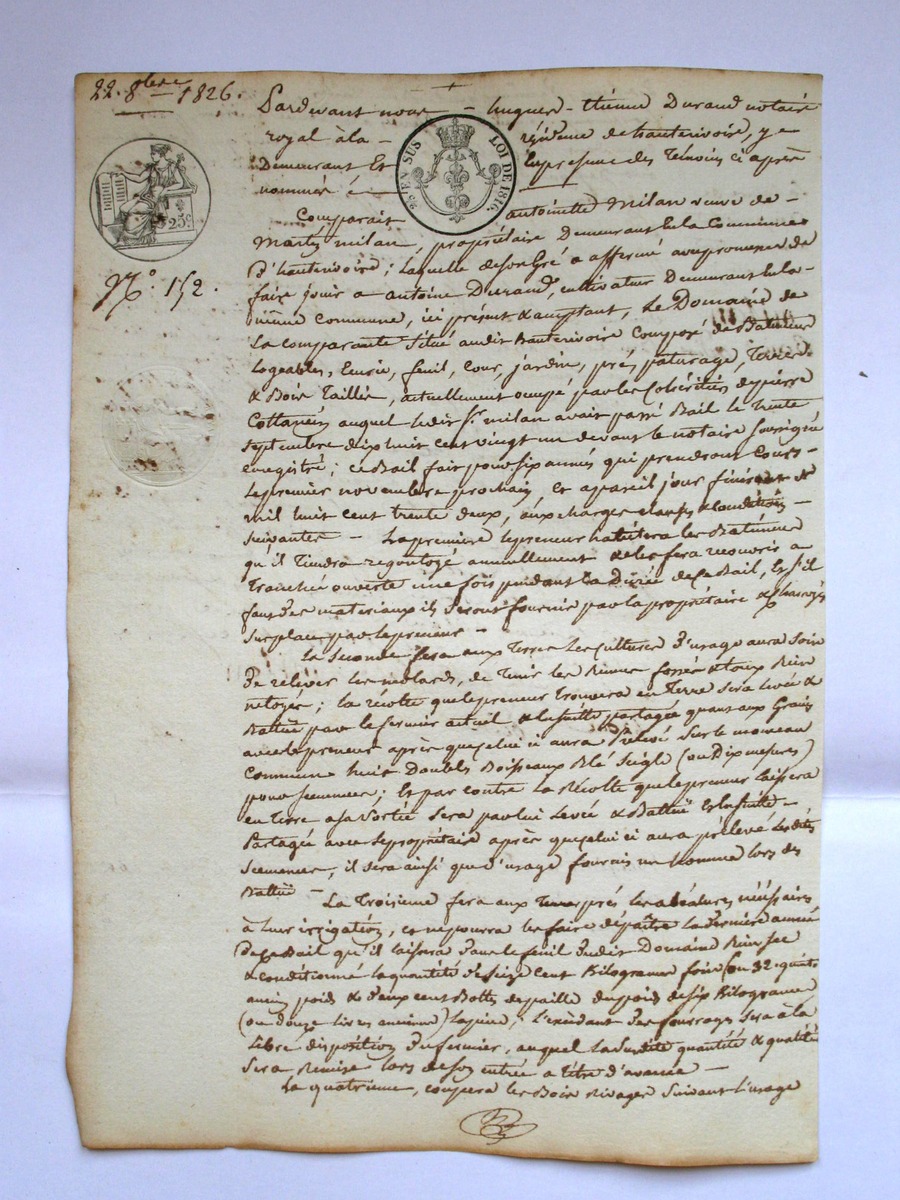 22. 8bre 1826.
Pardevant nous – hugues – étienne Durand notaire
royal à la – résidence de hauterivoire, y
Demeurant Et En presence des Témoins ci après
nommés
25c EN SUS LOI DE 1816.
25c.
N.o 152.
Comparait antoinette Milan veuve de –
Martin milan, propriétaire Demeurant En la Commune
D'hauterivoire; Laquelle de son Gré a affermé avec promesse de
faire jouir a antoine Durand, cultivateur Demeurant En la
même commune, ici présent & acceptant, Le Domaine de
La comparante Situé audit hauterivoire Composé de Batiments
Logeables, Ecurie, fenil, Cour, jardin, prés, paturage, Terres
& Bois Taillis, actuellement occupé par les
auquel ledit Sr. milan avait passé Bail le trente
septembre dix huit cent vingt un devant le notaire soussigné
enregistré; ce Bail fait pour six années qui prendront Cours –
Le premier novembre prochain, Et a pareil jour finiront
mil huit cent trente deux, aux charges clauses & conditions –
suivantes – La premiere le preneur habitera les Batiments
qu'il Tiendra regoutoyé annuellement & les fera recouvrir a
Tranchée ouverte une fois pendant la Durée de ce Bail, Et s'il
faut Des materiaux ils Seront fournis par la propriétaire & charroyés
sur place par le preneur –
La Seconde fera aux Terres Les Cultures D'usage aura soin
De relever les, de Tenir les fossés & Bien
netoyés; la récolte que le preneur Trouvera en Terre sera levée &
Battue par le fermier actuel & la suitte partagée quant aux Grains
avec le preneur après que celui ci aura prélevé sur le monceau
Commun huit Doubles Boisseaux Blé Seigle (ou Dix mesures)
pour semences; Et par contre La Récolte que le preneur laissera
en Terre a sa Sortie Sera par lui Levée & Battue Et Ensuitte –
Partagée avec le propriétaire après que celui ci aura prélevé les dites
Semences, il sera ainsi que d'usage fourni un homme lors des
Battus –
La Troisieme fera aux prés les nécéssaires
à Leur irrigation, et ne pourra les faire dépaître La derniere année
De ce Bail qu'il laissera Dans le fenil Dudit Domaine Bien sec
& conditionné la quantité De seize Cent Kilogrames foin (ou 32 quintx
anciens poids & Deux cent Bottes de paille du poids de six Kilogrames
(ou Douze livres anciennes) La piece; L'excédant Des fourrages Sera à la
Libre disposition Du fermier, auquel La Susdite quantité & qualité
Sera Remise lors de son entrée a titre d'avance –
La quatrieme, coupera les Bois Suivant L'usage